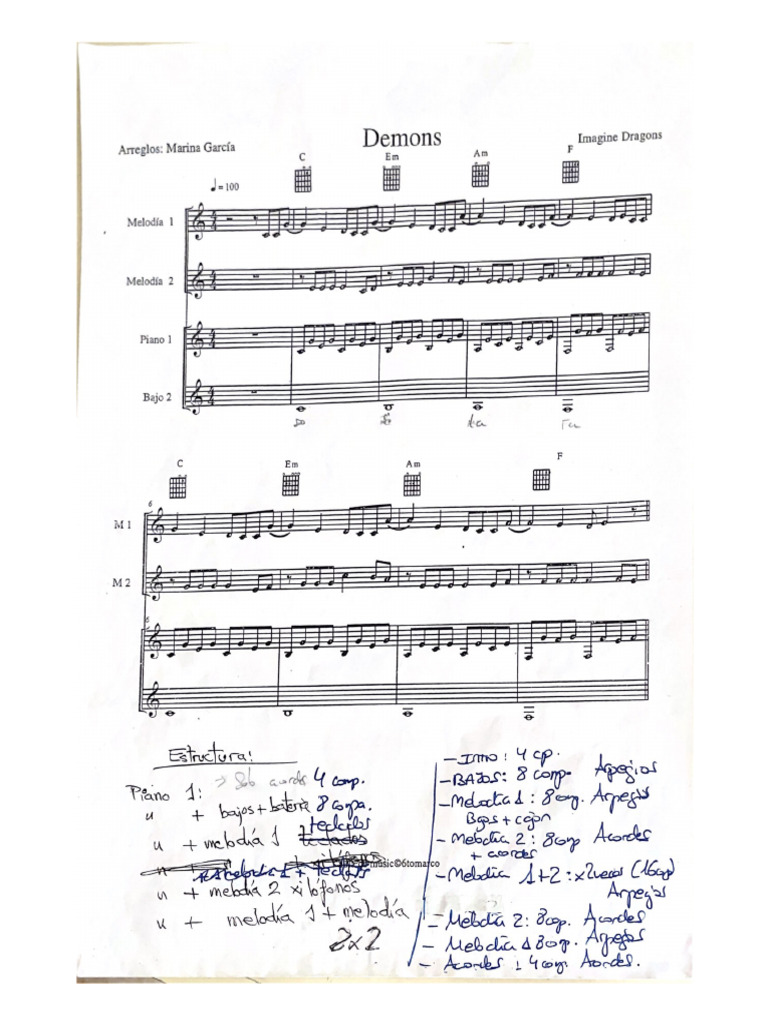 Demons
Arreglos: Marina García
Imagine Dragons
C Em Am F
♩= 100
Melodía 1
Melodía 2
Piano 1
Bajo 2
Do La Fa
C Em Am F
6
M 1
M 2
6
Estructura:
Piano 1: → Solo acordes 4 comp.
" + bajos + batería 8 compa.
teclados
" + melodía 1 teclados
music©6tomarco
melodía 1 + teclados
" + melodía 2 xilófonos
" + melodía 1 + melodía
2x2
- Intro: 4 cp.
- BAJOS: 8 comp. Arpegios
- Melodía 1: 8 comp. Arpegios
Bajos + cajón
- Melodía 2: 8 comp Acordes
+ acordes
- Melodía 1+2: x2 veces (16 cp)
Arpegios
- Melodía 2: 8 comp. Acordes
- Melodía 1 8 comp. Arpegios
- Acordes : 4 comp. Acordes.